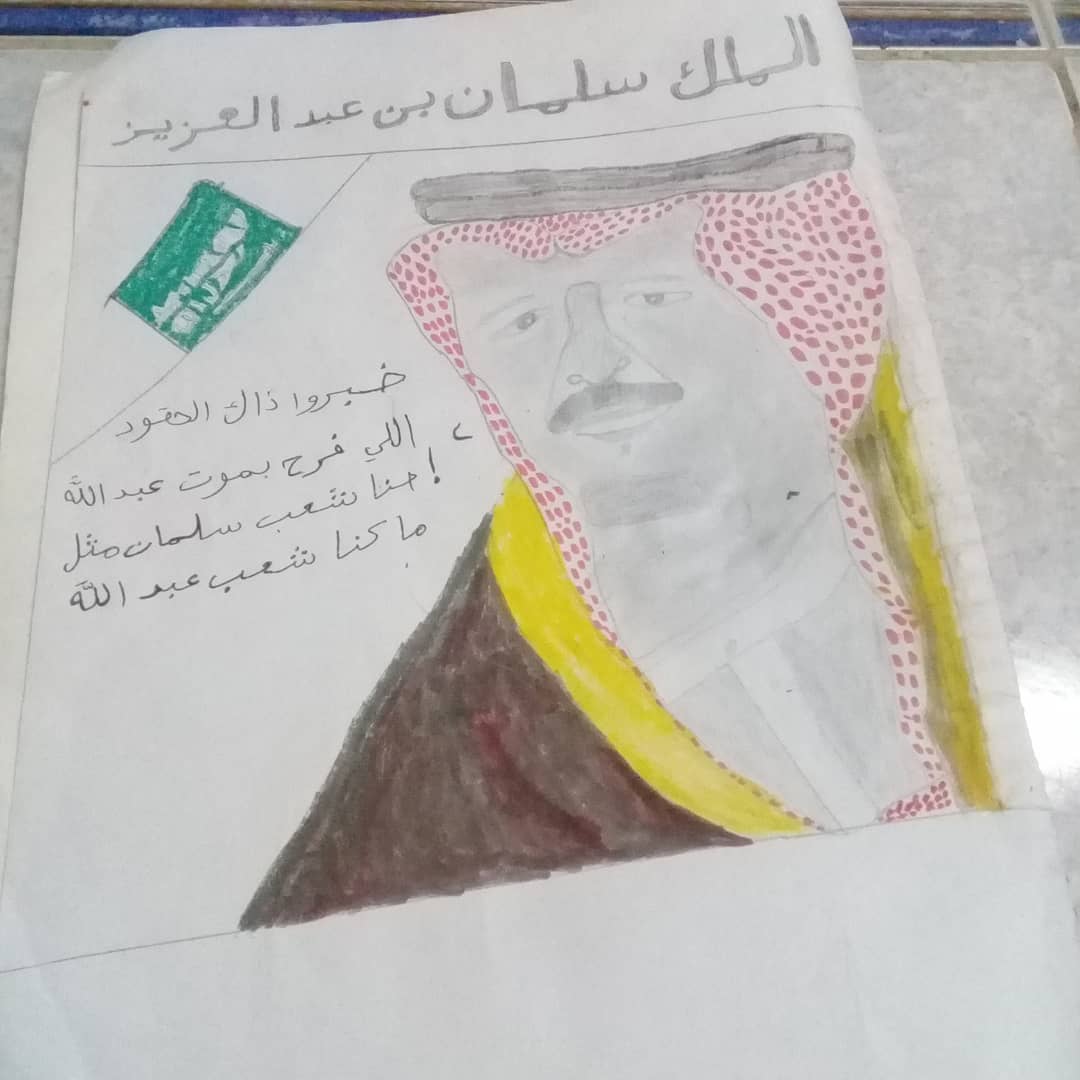 الملك سلمان بن عبد العزيز
خبروا ذاك الحقود
اللي فرح بموت عبد اللّٰه
! حنا شعب سلمان مثل
ما كنا شعب عبد اللّٰه